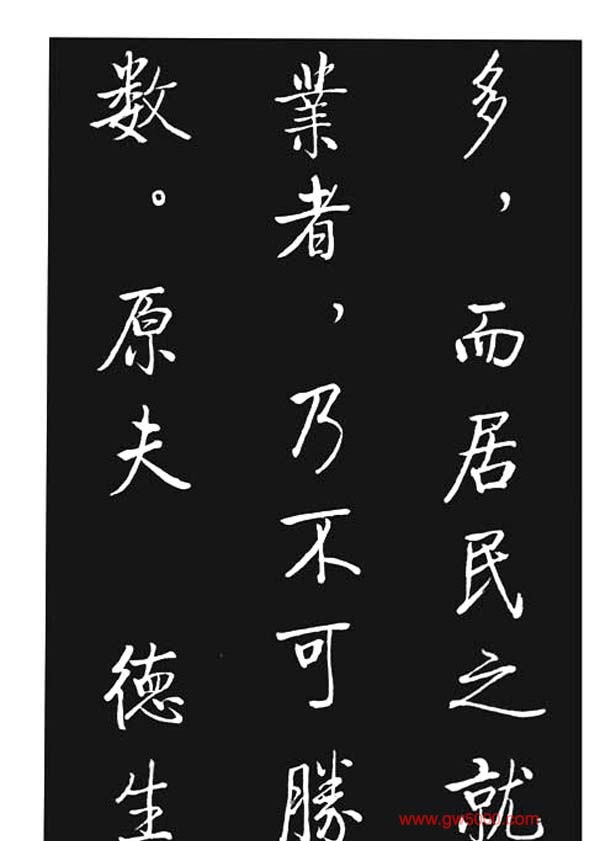 多，而居民之就
業者，乃不可勝
数。原夫 德生
www.gw5000.com